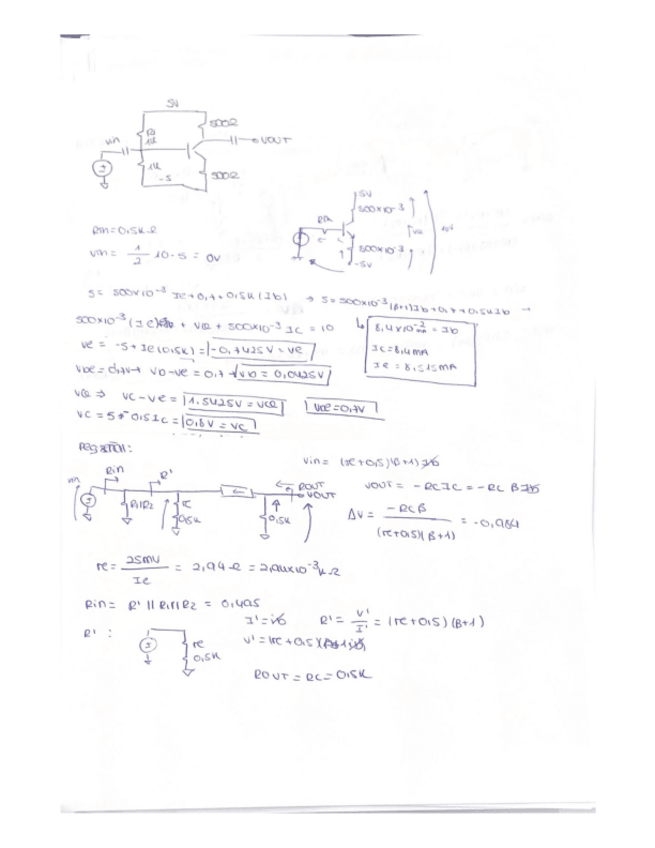 5V
500Ω
R1
1k
vin
VOUT
1k
-5
500Ω
5V
500x10⁻³
Rin
500x10⁻³
-5V
Rin = 0,5kΩ
vin = 1/2 10 - 5 = 0V
5 = 500x10⁻³ Ie + 0,7 + 0,5k (Ib) → 5 = 500x10⁻³ (β+1)Ib + 0,7 + 0,5k Ib →
500x10⁻³ (Ie) + VCE + 500x10⁻³ IC = 10
8,4x10⁻² = Ib
IC = 8,4mA
Ie = 8,515mA
Ve = -5 + Ie (0,5k) = -0,7425V = Ve
Vbe = 0,7V → Vb - Ve = 0,7 → Vb = 0,0425V
VCE ⇒ VC - Ve = 1,5425V = VCE
Vbe = 0,7V
VC = 5 - 0,5 IC = 0,8V = VC
Vin = (re + 0,5)(β+1) ib
Rin
R'
ROUT
VOUT
VOUT = -RC IC = -RC β ib
vin
R1//R2
re
0,5k
0,5k
ΔV = -RC β / (re + 0,5)(β+1) = -0,984
re = 25mV / Ie = 2,94Ω = 2,94x10⁻³ kΩ
Rin = R' // R1//R2 = 0,495
I' = ib
R' = V'/I' = (re + 0,5)(β+1)
R' :
re
0,5k
V' = (re + 0,5)(β+1) ib
ROUT = RC = 0,5k